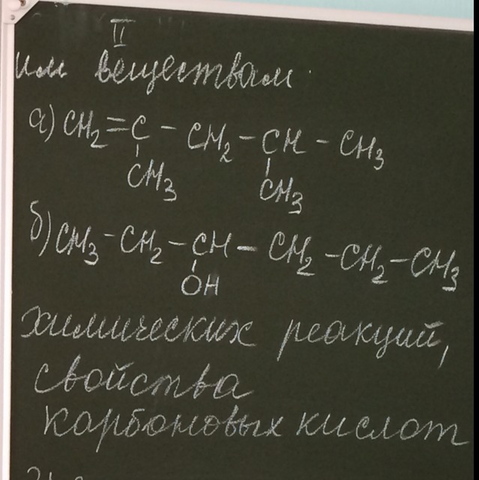 II
им веществам:
а) CH2=C-CH2-CH-CH3
CH3 CH3
б) CH3-CH2-CH-CH2-CH2-CH3
OH
химических реакций,
свойства
карбоновых кислот